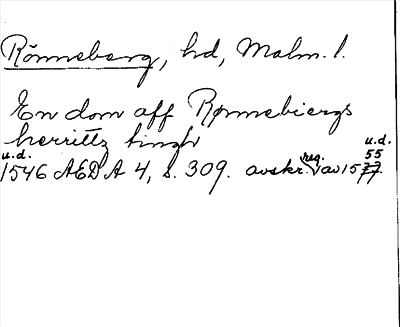 Rönneberg, hd, Malm. l.
En dom aff Rønnebiergs
herrittz tingh
u.d. u.d.
reg. 55
1546 AEDA 4, s. 309. avskr. av 1577.